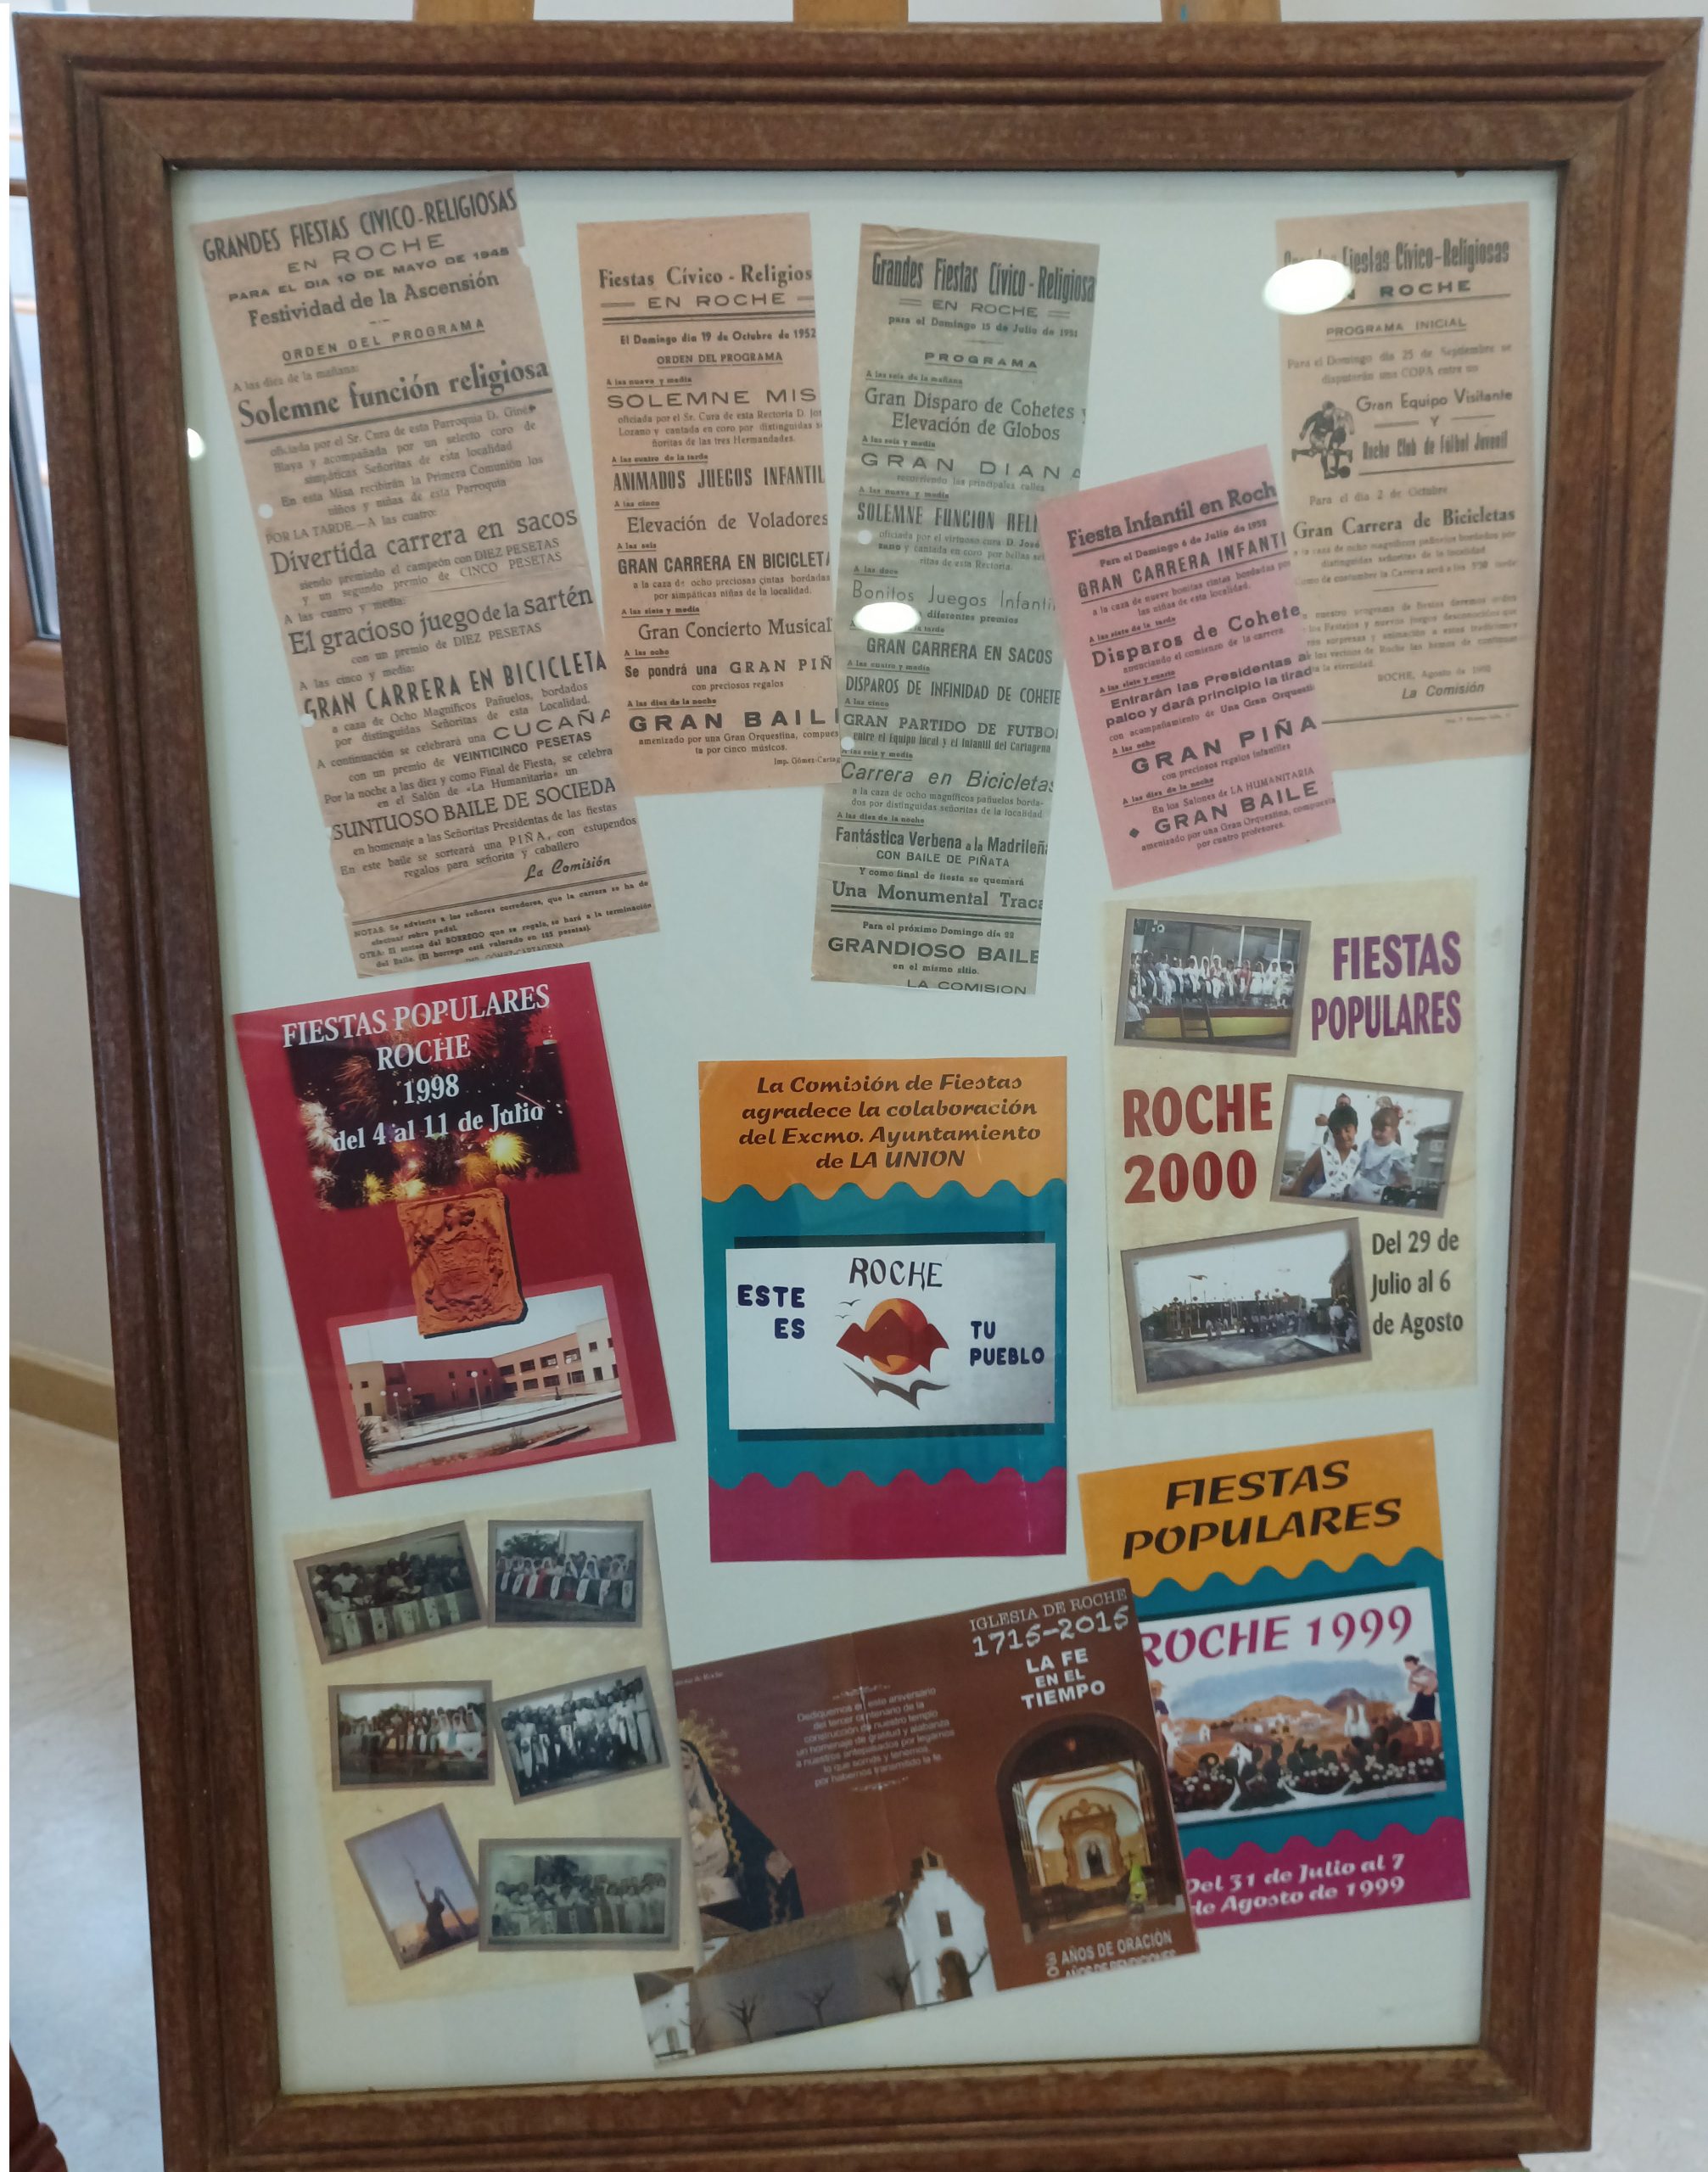 GRANDES FIESTAS CIVICO-RELIGIOSAS
EN ROCHE
PARA EL DIA 10 DE MAYO DE 1945
Festividad de la Ascensión
ORDEN DEL PROGRAMA
A las diez de la mañana:
Solemne función religiosa
oficiada por el Sr. Cura de esta Parroquia D. Ginés
Blaya y acompañada por un selecto coro de
simpáticas Señoritas de esta localidad
En esta Misa recibirán la Primera Comunión los
niños y niñas de esta Parroquia
POR LA TARDE.—A las cuatro:
Divertida carrera en sacos
siendo premiado el campeón con DIEZ PESETAS
y un segundo premio de CINCO PESETAS
A las cuatro y media:
El gracioso juego de la sartén
con un premio de DIEZ PESETAS
A las cinco y media:
GRAN CARRERA EN BICICLETA
a caza de Ocho Magníficos Pañuelos, bordados
por distinguidas Señoritas de esta Localidad.
A continuación se celebrará una CUCAÑA
con un premio de VEINTICINCO PESETAS
Por la noche a las diez y como Final de Fiesta, se celebra
en el Salón de «La Humanitaria» un
SUNTUOSO BAILE DE SOCIEDA
en homenaje a las Señoritas Presidentas de las fiestas
En este baile se sorteará una PIÑA, con estupendos
regalos para señorita y caballero
La Comisión
NOTAS: Se advierte a los señores corredores, que la carrera se ha de
efectuar sobre pedal.
OTRA: El sorteo del BORREGO que se regala, se hará a la terminación
del Baile. (El borrego está valorado en 125 pesetas).
Fiestas Cívico - Religios
EN ROCHE
El Domingo día 19 de Octubre de 1952
ORDEN DEL PROGRAMA
A las nueve y media
SOLEMNE MIS
oficiada por el Sr. Cura de esta Rectoría D. Jos
Lozano y cantada en coro por distinguidas s
ñoritas de las tres Hermandades.
A las cuatro de la tarde
ANIMADOS JUEGOS INFANTIL
A las cinco
Elevación de Voladores
A las seis
GRAN CARRERA EN BICICLETA
a la caza de ocho preciosas cintas bordadas
por simpáticas niñas de la localidad.
A las siete y media
Gran Concierto Musical
A las ocho
Se pondrá una GRAN PIÑ
con preciosos regalos
A las diez de la noche
GRAN BAILE
amenizado por una Gran Orquestina, compues
ta por cinco músicos.
Imp. Gómez-Cartag
Grandes Fiestas Cívico - Religiosa
EN ROCHE
para el Domingo 15 de Julio de 1951
PROGRAMA
A las seis de la mañana
Gran Disparo de Cohetes y
Elevación de Globos
A las seis y media
GRAN DIANA
recorriendo las principales calles
A las nueve y media
SOLEMNE FUNCION RELI
oficiada por el virtuoso cura D. José
zano y cantada en coro por bellas señ
ritas de esta Rectoría.
A las doce
Bonitos Juegos Infantil
diferentes premios
tarde
GRAN CARRERA EN SACOS
A las cuatro y media
DISPAROS DE INFINIDAD DE COHETE
A las cinco
GRAN PARTIDO DE FUTBOL
entre el Equipo local y el Infantil del Cartagena
A las seis y media
Carrera en Bicicletas
a la caza de ocho magníficos pañuelos borda-
dos por distinguidas señoritas de la localidad
A las diez de la noche
Fantástica Verbena a la Madrileña
CON BAILE DE PIÑATA
Y como final de fiesta se quemará
Una Monumental Traca
Para el próximo Domingo día 22
GRANDIOSO BAILE
en el mismo sitio.
LA COMISION
Fiesta Infantil en Roch
Para el Domingo 6 de Julio de 1952
GRAN CARRERA INFANTI
a la caza de nueve bonitas cintas bordadas por
las niñas de esta localidad.
A las siete de la tarde
Disparos de Cohete
anunciando el comienzo de la carrera
A las siete y cuarto
Entrarán las Presidentas a
palco y dará principio la tirad
con acompañamiento de Una Gran Orquesti
A las ocho
GRAN PIÑA
con preciosos regalos infantiles
A las diez de la noche
En los Salones de LA HUMANITARIA
GRAN BAILE
amenizado por una Gran Orquestina, compuesta
por cuatro profesores.
Fiestas Cívico-Religiosas
ROCHE
PROGRAMA INICIAL
Para el Domingo día 25 de Septiembre se
disputarán una COPA entre un
Gran Equipo Visitante
Y
Roche Club de Fútbol Juvenil
Para el día 2 de Octubre
Gran Carrera de Bicicletas
a la caza de ocho magníficos pañuelos bordados por
distinguidas señoritas de la localidad
Como de costumbre la Carrera será a las 3'30 tarde
ROCHE, Agosto de
La Comisión
FIESTAS POPULARES
ROCHE
1998
del 4 al 11 de Julio
La Comisión de Fiestas
agradece la colaboración
del Excmo. Ayuntamiento
de LA UNION
ROCHE
ESTE
ES
TU
PUEBLO
FIESTAS
POPULARES
ROCHE
2000
Del 29 de
Julio al 6
de Agosto
FIESTAS
POPULARES
ROCHE 1999
Del 31 de Julio al 7
de Agosto de 1999
IGLESIA DE ROCHE
1715-2015
LA FE
EN EL
TIEMPO
Dediquemos en este aniversario
del tercer centenario de la
construcción de nuestro templo
un homenaje de gratitud y alabanza
a nuestros antepasados por legarnos
lo que somos y tenemos,
por habernos transmitido la fe.
AÑOS DE ORACIÓN
AÑOS DE BENDICIONES